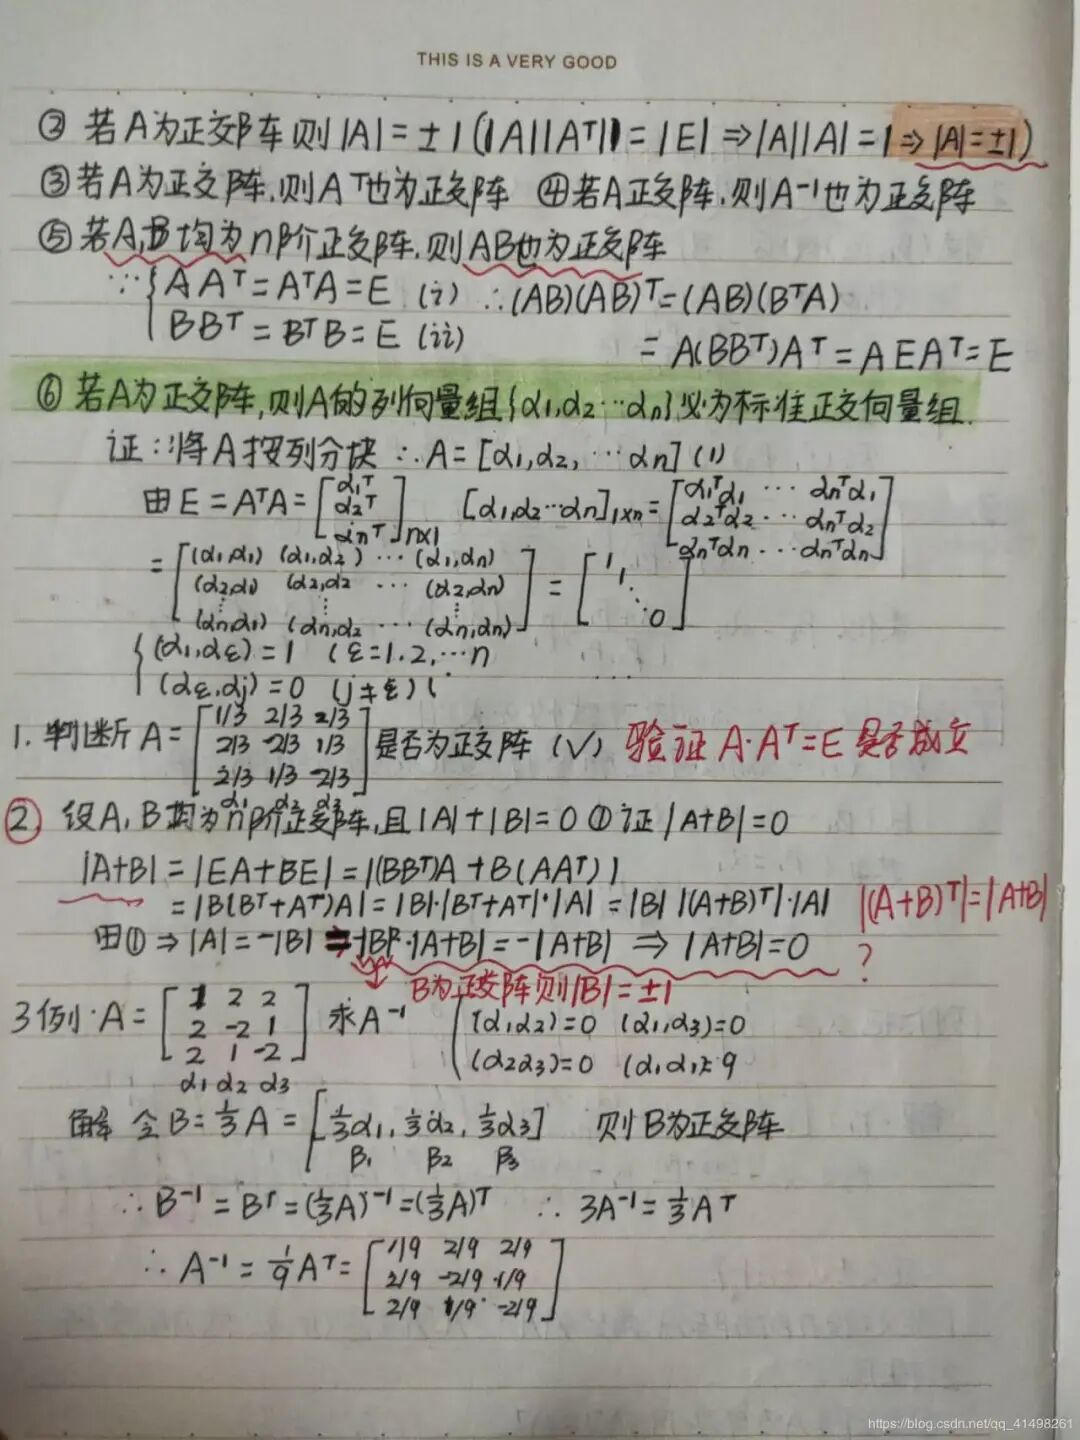 THIS IS A VERY GOOD
② 若A为正交阵则|A|=±1(|A||Aᵀ|=|E|⇒|A||A|=1⇒|A|=±1)
③若A为正交阵,则Aᵀ也为正交阵 ④若A正交阵,则A⁻¹也为正交阵
⑤若A,B均为n阶正交阵,则AB也为正交阵
∵{AAᵀ=AᵀA=E (i) ∴(AB)(AB)ᵀ=(AB)(BᵀA)
BBᵀ=BᵀB=E (ii) =A(BBᵀ)Aᵀ=AEAᵀ=E
⑥若A为正交阵,则A的列向量组{α1,α2…αn}必为标准正交向量组.
证:将A按列分块 ∴A=[α1,α2,…αn] (1)
由E=AᵀA=[α1ᵀ α2ᵀ αnᵀ]n×1 [α1,α2…αn]1×n=[α1ᵀα1 … αnᵀα1
α2ᵀα2 … αnᵀα2
αnᵀαn … αnᵀαn]
=[(α1,α1) (α1,α2) … (α1,αn)
(α2,α1) (α2,α2 … (α2,αn)
(αn,α1) (αn,α2 … (αn,αn)]=[1 1 ⋱ 0]
{(α1,αε)=1 (ε=1.2,…n
(αε,αj)=0 (j≠ε)(
1.判断A=[1/3 2/3 2/3
2/3 -2/3 1/3
2/3 1/3 -2/3]是否为正交阵 (√) 验证A·Aᵀ=E是否成立
α1 α2 α3
②.设A,B均为n阶正交阵,且|A|+|B|=0 ①证|A+B|=0
|A+B|=|EA+BE|=|(BBᵀ)A+B(AAᵀ)|
=|B(Bᵀ+Aᵀ)A|=|B|·|Bᵀ+Aᵀ|·|A|=|B||(A+B)ᵀ|·|A| |(A+B)ᵀ|=|A+B|
由①⇒|A|=-|B| ⇒-|B|²·|A+B|=-|A+B| ⇒|A+B|=0 ?
B为正交阵则|B|=±1
3例·A=[1 2 2
2 -2 1
2 1 -2] 求A⁻¹ {(α1,α2)=0 (α1,α3)=0
(α2α3)=0 (α1,α1)=9
α1 α2 α3
解 令B=1/3A=[1/3α1,1/3α2,1/3α3] 则B为正交阵
β1 β2 β3
∴B⁻¹=Bᵀ=(1/3A)⁻¹=(1/3A)ᵀ ∴3A⁻¹=1/3Aᵀ
∴A⁻¹=1/9Aᵀ=[1/9 2/9 2/9
2/9 -2/9 1/9
2/9 1/9 -2/9]
https://blog.csdn.net/qq_41498261